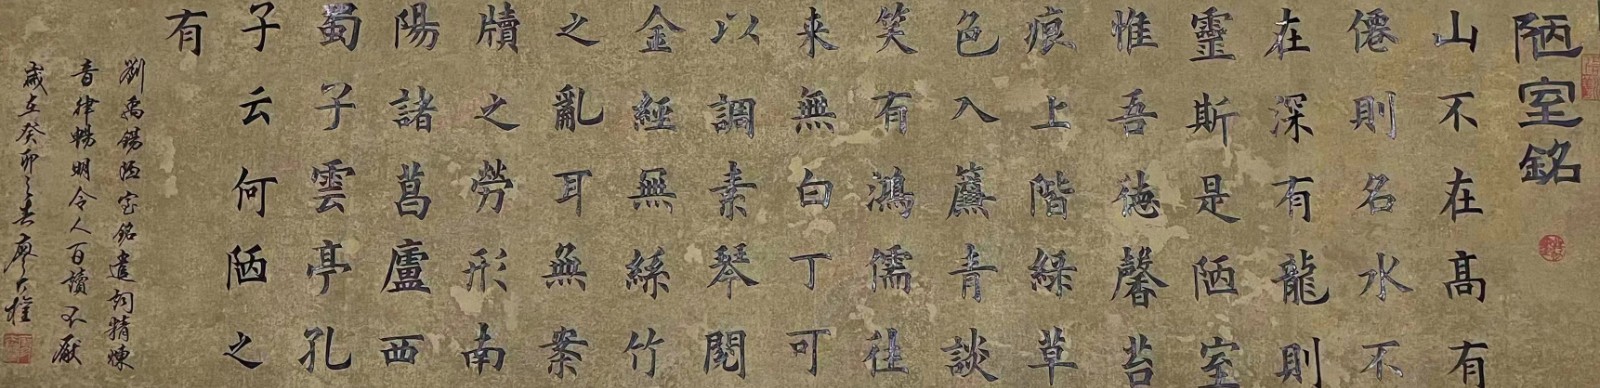 陋室銘
山不在高有
僊則名水不
在深有龍則
靈斯是陋室
惟吾德馨苔
痕上階綠草
色入簾青談
笑有鴻儒往
来無白丁可
以調素琴閱
金經無絲竹
之亂耳無案
牘之勞形南
陽諸葛廬西
蜀子雲亭孔
子云何陋之
有
劉禹錫陋室銘遣詞精煉
音律暢明令人百讀不厭
歲在癸卯之春廖